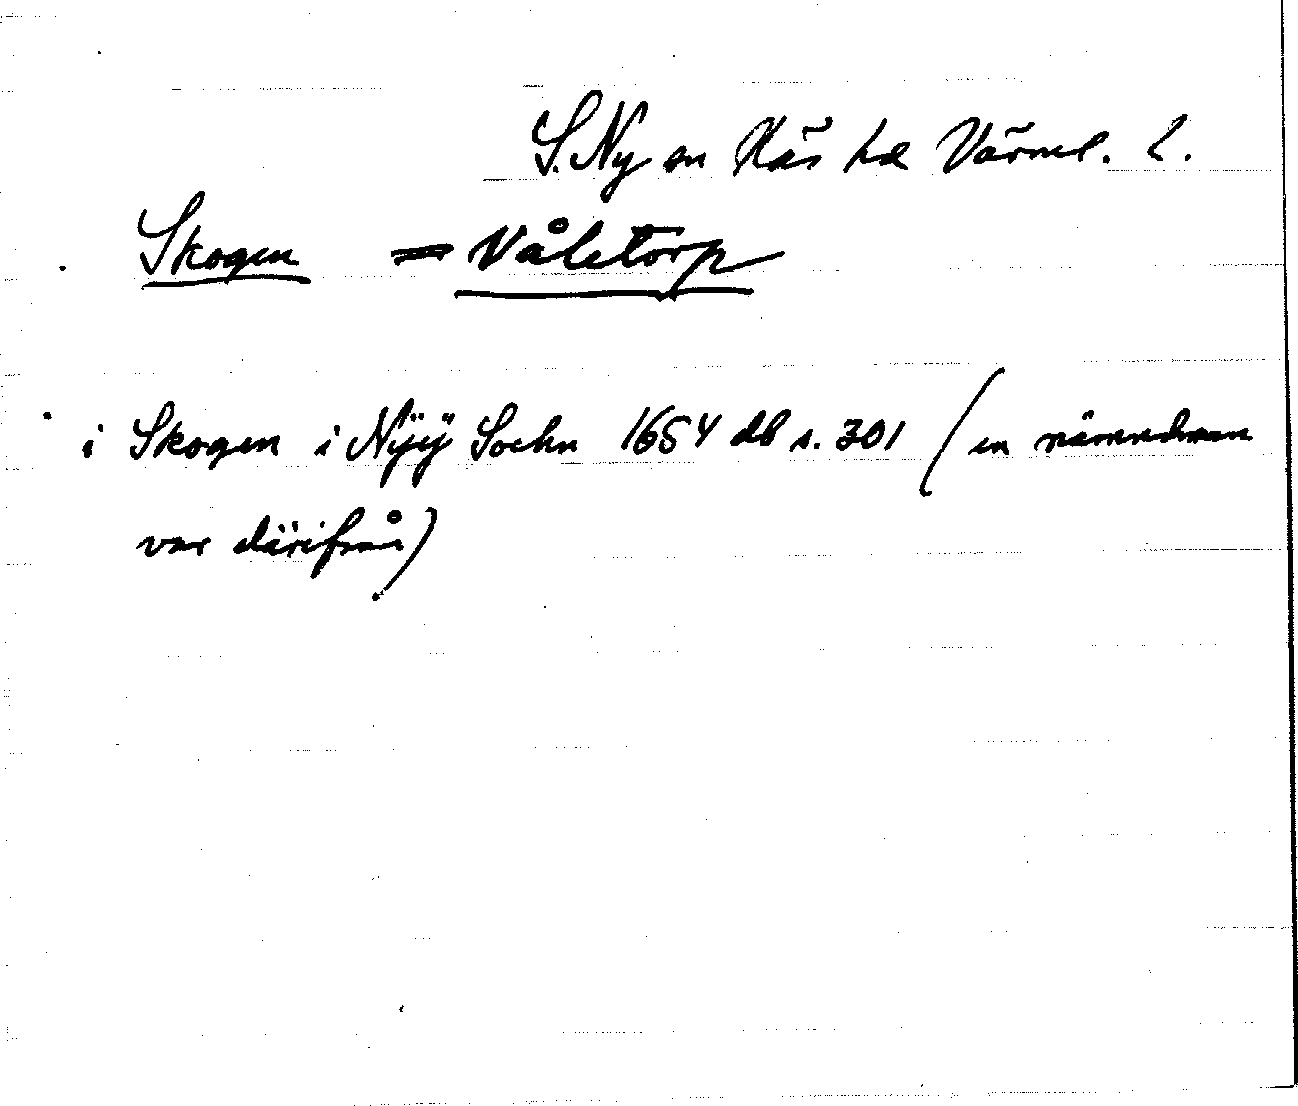 S. Ny sn Näs hd Värml. l.
Skogen = Våletorp
i Skogen i Nÿÿ Sochn 1654 db s. 301 (en nämndman
var därifrån)